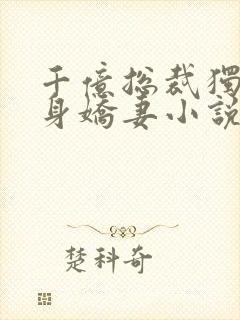 千億总裁獨
身嬌妻小說
楚科奇